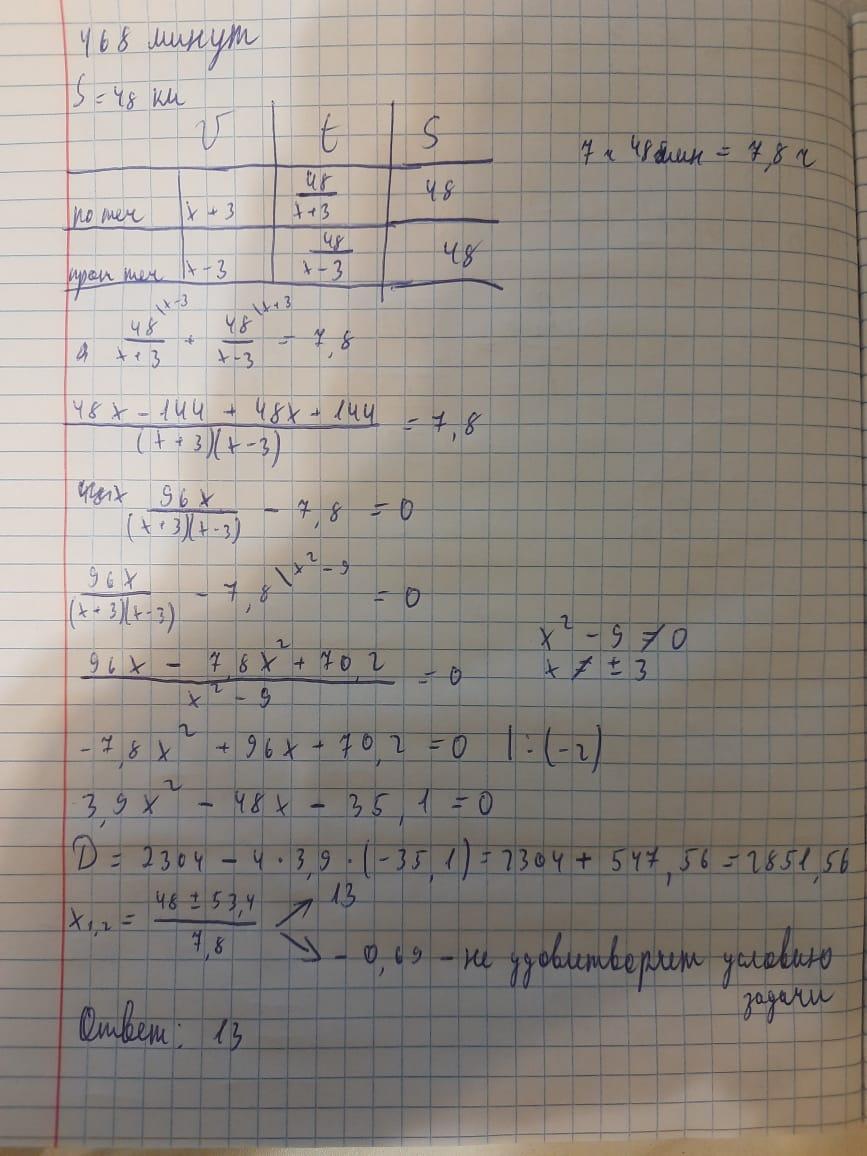 468 минут
S = 48 км
V t S
7 ч 48 мин = 7,8 ч
по теч x + 3 48/(x+3) 48
прот теч x - 3 48/(x-3) 48
48/(x+3) \x-3 + 48/(x-3) \x+3 = 7,8
(48x - 144 + 48x + 144)/((x+3)(x-3)) = 7,8
96x/((x+3)(x-3)) - 7,8 = 0
96x/((x+3)(x-3)) - 7,8 \x² - 9 = 0
x² - 9 ≠ 0
x ≠ ± 3
(96x - 7,8x² + 70,2)/(x² - 9) = 0
-7,8x² + 96x + 70,2 = 0 | : (-2)
3,9x² - 48x - 35,1 = 0
D = 2304 - 4 · 3,9 · (-35,1) = 2304 + 547,56 = 2851,56
x₁,₂ = (48 ± 53,4)/7,8 ↗ 13
↘ - 0,69 - не удовлитворяет условию
задачи
Ответ: 13